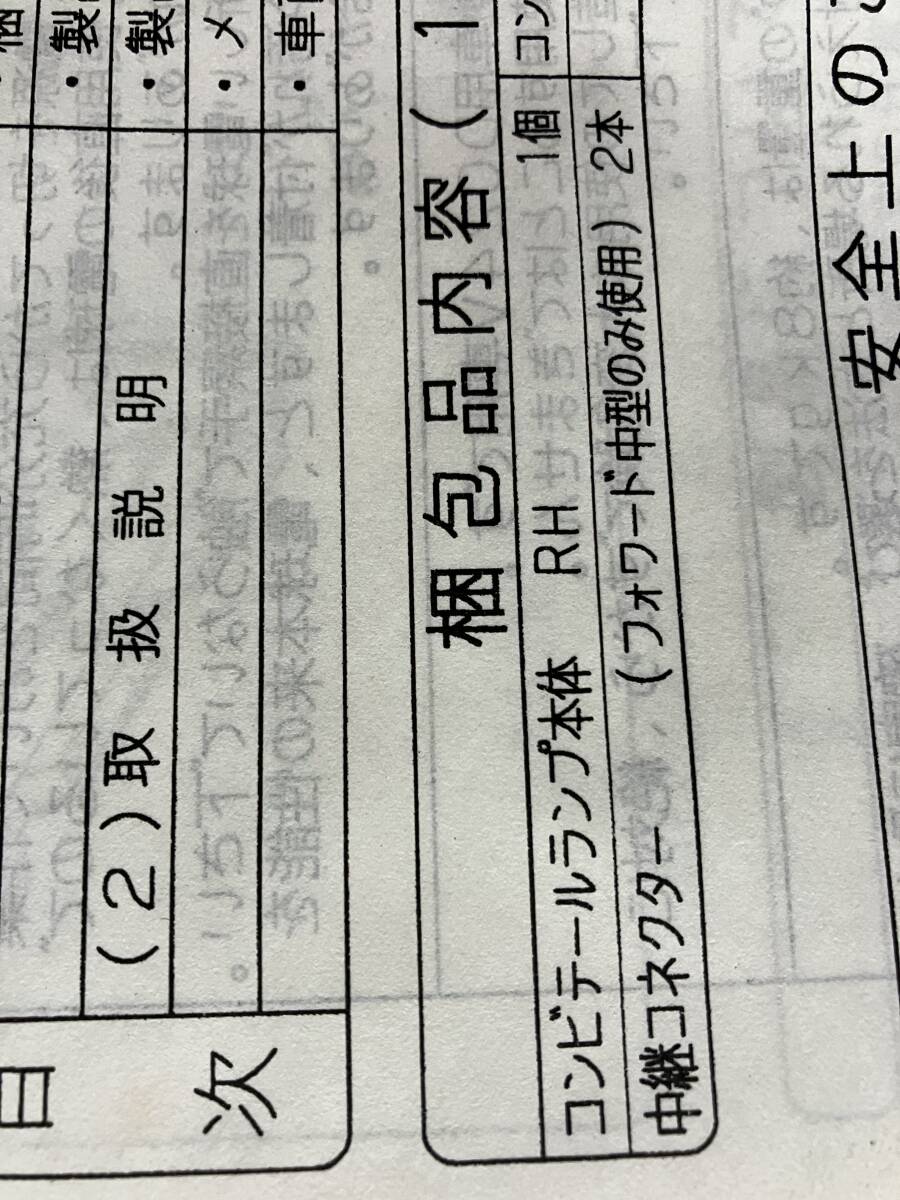 目次
(2)取扱説明
・製
・製
・メ
・車
梱包品内容(1
コンビテールランプ本体 RH 1個
コン
中継コネクター (フォワード中型のみ使用) 2本
安全上の